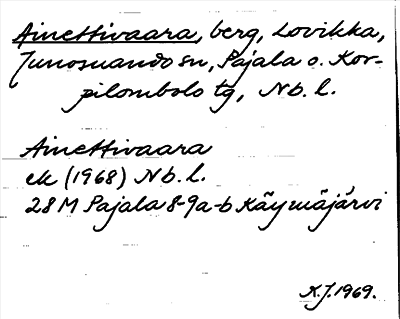 Ainettivaara, berg, Lovikka,
Junosuando sn, Pajala o. Kor-
pilombolo tg, Nb. l.
Ainettivaara
ek (1968) Nb. l.
28 M Pajala 8-9a-b Käymäjärvi
K.J. 1969.